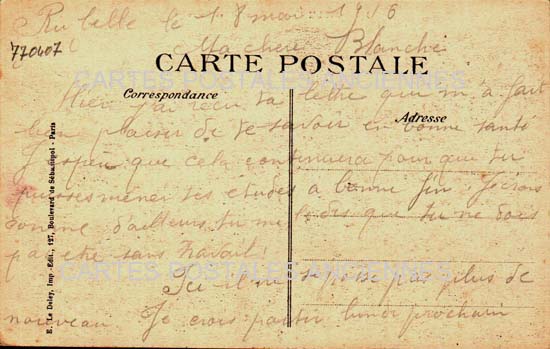 Rubelle le 18 mai 1916
770407
Ma chère Blanche
CARTE POSTALE
CARTES POSTALES ANCIENNES
Correspondance
Adresse
Hier j'ai reçu ta lettre qui m'a fait
bien plaisir de te savoir en bonne santé
J'espère que cela continuera pour que tu
puisses mener tes études à bonne fin. Je crois
comme d'ailleurs tu me le dis que tu ne dois
pas être sans travail.
CARTES POSTALES ANCIENNES
Ici il ne se passe pas plus de
nouveau Je crois partir lundi prochain
E. Le Deley, Imp.-Edit., 127, Boulevard de Sébastopol - Paris